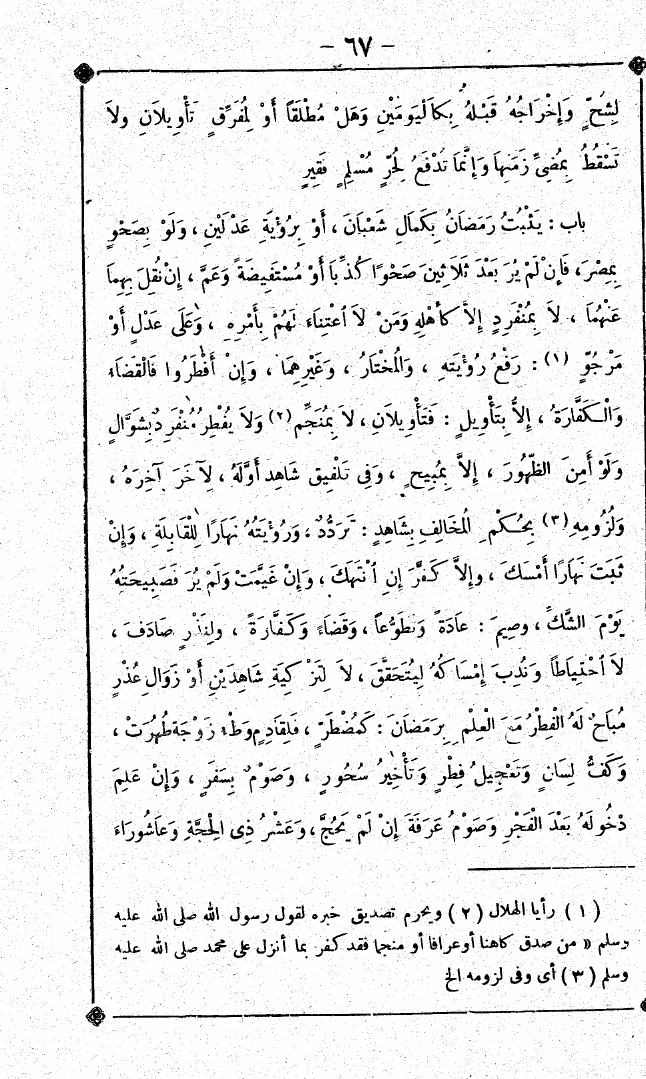 - ٦٧ -
لِشُحٍّ وَإِخْرَاجُهُ قَبْلَهُ بِكَالْيَوْمَيْنِ وَهَلْ مُطْلَقًا أَوْ لِمُفَرِّقٍ تَأْوِيلاَنِ ولاَ
تَسْقُطُ بِمُضِىِّ زَمَنِهاَ وَإِنَّمَا تُدْفَعُ لِحُرٍّ مُسْلِمٍ فَقِيرٍ
باب : يَثْبُتُ رَمَضَانُ بِكَمَالِ شَعْبَانَ ، أَوْ بِرُؤْيَةِ عَدْلَيْنِ ، وَلَوْ بِصَحْوٍ
بِمِصْرَ ، فَإِنْ لَمْ يُرَ بَعْدَ ثَلاَثِينَ صَحْوًا كُذِّباَ أَوْ مُسْتَفِيضَةً وَعَمَّ ، إِنْ نُقِلَ بِهِماَ
عَنْهُمَا ، لاَ بِمُنْفَرِدٍ إِلاَّ كأَهْلِهِ وَمَنْ لاَ اعْتِنَاءَ لَهُمْ بِأَمْرِهِ ، وَعَلَى عَدْلٍ أَوْ
مَرْجُوٍّ (١) : رَفْعُ رُؤْيَتِهِ ، وَالْمُخْتَارُ ، وَغَيْرِهِمَا ، وَإِنْ أَفْطَرُوا فَالْقَضَاءُ
وَالْكَفَّارَةُ ، إِلاَّ بِتَأْوِيلٍ : فَتَأْوِيلاَنِ ، لاَ بِمُنَجِّمٍ (٢) وَلاَ يُفْطِرُ مُنْفَرِدٌ بِشَوَّالٍ
وَلَوْ أَمِنَ الظُّهُورَ ، إِلاَّ بِمُبِيحٍ ، وَفِى تَلْفِيقِ شَاهِدِ أَوَّلَهُ ، لِآخَرَ آخِرَهُ ،
وَلُزُومِهِ (٣) بِحُكْمِ الْمُخَالِفِ بِشَاهِدٍ : تَرَدُّدٌ ، وَرُؤْيَتُهُ نَهَارًا لِلْقَابِلَةِ ، وَإِنْ
ثَبَتَ نَهَارًا أَمْسَكَ ، وإِلاَّ كَفَّرَ إِنِ انْتَهَكَ ، وَإِنْ غَيَّمَتْ وَلَمْ يُرَ فَصَبِيحَتُهُ
يَوْمُ الشَّكِّ ، وصِيمَ : عَادَةً وَتَطَوُّعاً ، وَقَضَاءً وَكَفَّارَةً ، وَلِنَذْرٍ صَادَفَ ،
لاَ احْتِيَاطاً وَنُدِبَ إِمْسَاكُهُ لِيُتَحَقَّقَ ، لاَ لِتَزْكِيَةِ شَاهِدَيْنِ أَوْ زَوَالِ عُذْرٍ
مُبَاحٌ لَهُ الْفِطْرُ مَعَ الْعِلْمِ بِرَمَضَانَ : كَمُضْطَرٍّ ، فَلِقَادِمٍ وَطْءُ زَوْجَةٍ طَهُرَتْ ،
وَكَفُّ لِسَانٍ وَتَعْجِيلُ فِطْرٍ وَتَأْخِيرُ سُحُورٍ ، وَصَوْمٌ بِسَفَرٍ ، وَإِنْ عَلِمَ
دُخُولَهُ بَعْدَ الْفَجْرِ وَصَوْمُ عَرَفَةَ إِنْ لَمْ يَحُجَّ ، وَعَشْرُ ذِى الْحِجَّةِ وَعَاشُورَاءَ
(١) رأيا الهلال (٢) ويحرم تصديق خبره لقول رسول الله صلى الله عليه
وسلم « من صدق كاهنا أو عرافا أو منجما فقد كفر بما أنزل على محمد صلى الله عليه
وسلم (٣) أى وفى لزومه الخ